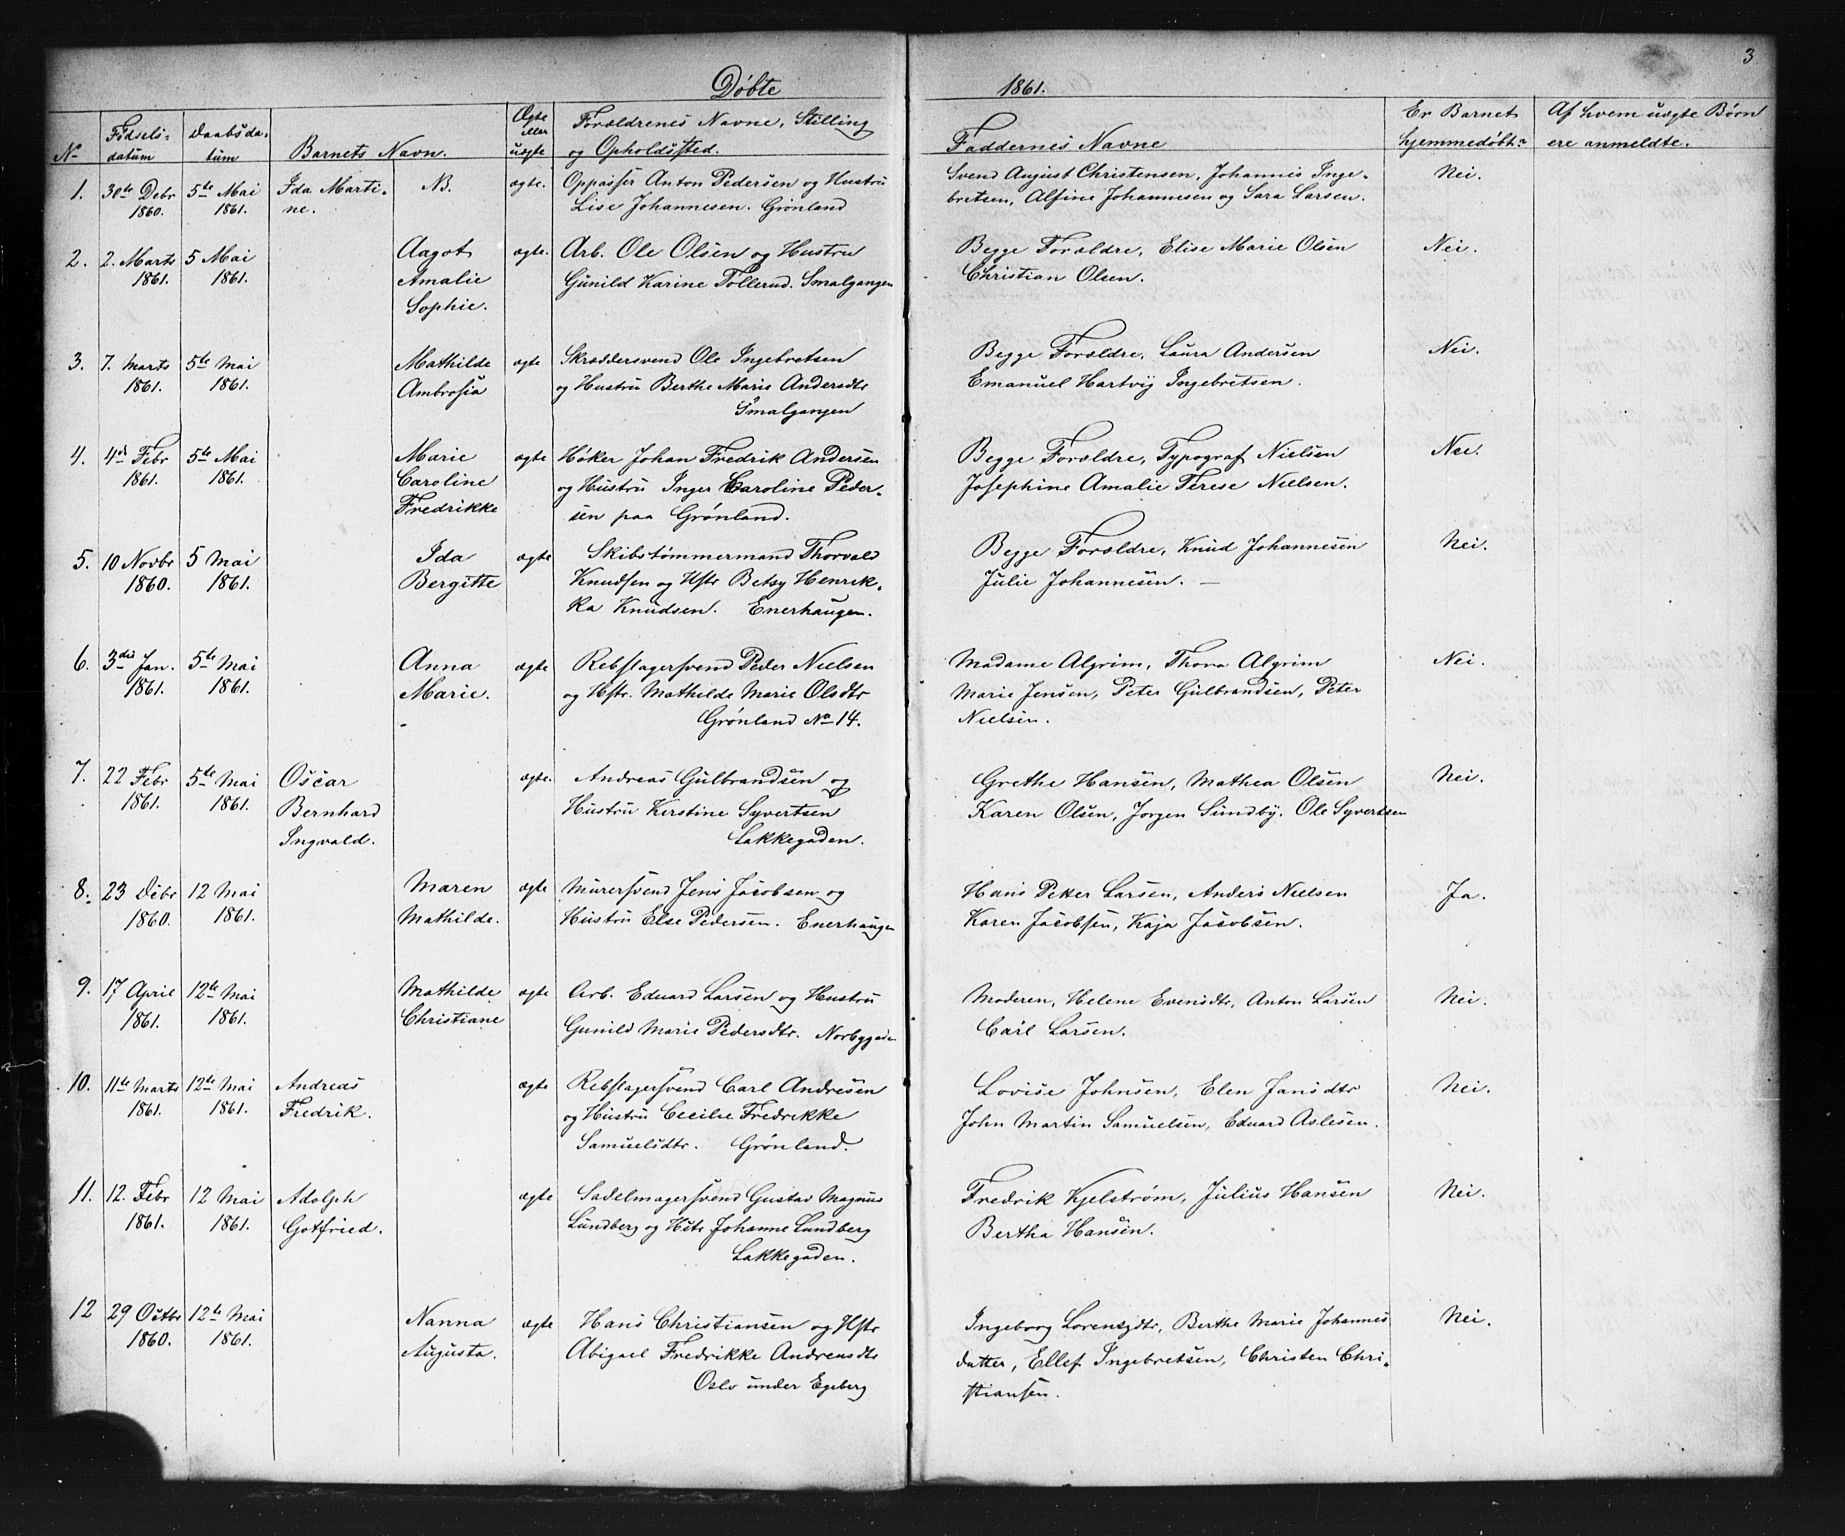 3
Døbte 1861.
No Fødsels- datum Daabsda- tum Barnets Navn. Ægte eller uægte Forældrenes Navne, Stilling og Opholdssted. Faddernes Navne Er Barnet hjemmedøbt? Af hvem uægte Børn ere anmeldte.
1. 30te Debr 5te Mai Ida Marti- NB. ægte. Oppasser Anton Pedersen og Hustru Svend August Christensen, Johannis Inge- Nei.
1860. 1861. ne. Lise Johannesen. Grønland bretsen, Alfine Johannesen og Sara Larsen.
2. 2. Marts 5 Mai Aagot ægte. Arb. Ole Olsen og Hustru Begge Forældre, Elise Marie Olsen Nei.
1861. 1861. Amalie Gunild Karine Tollerud. Smalgangen Christian Olsen.
Sophie.
3. 7. Marts 5te Mai Mathilde ægte Skræddersvend Ole Ingebretsen Begge Forældre, Laura Andersen Nei.
1861. 1861. Ambrosia og Hustru Berthe Marie Andersdtr Emanuel Hartvig Ingebretsen.
Smalgangen
4. 4de Febr 5te Mai Marie ægte Høker Johan Fredrik Andersen Begge Forældre, Typograf Nielsen Nei.
1861. 1861. Caroline og Hustru Inger Caroline Peder- Josephine Amalie Terese Nielsen.
Fredrikke sen paa Grønland.
5. 10 Novbr 5 Mai Ida ægte Skibstømmermand Thorvald Begge Forældre, Knud Johannesen Nei.
1860. 1861. Bergitte Knudsen og Hstr Betsy Henrik- Julie Johannesen. —
ka Knudsen. Enerhaugen.
6. 3die Jan. 5te Mai Anna ægte Rebslagersvend Peder Nielsen Madame Algrim, Thora Algrim Nei.
1861. 1861. Marie. og Hstr. Mathilde Marie Olsdtr Marie Jensen, Peter Gulbrandsen, Peter
Grønland No 14. Nielsen.
7. 22 Febr 5te Mai Oscar ægte. Andreas Gulbrandsen og Grethe Hansen, Mathea Olsen Nei.
1861. 1861. Bernhard Hustru Kerstine Syvertsen Karen Olsen, Jørgen Sundby. Ole Syvertsen
Ingvald. Lakkegaden.
8. 23 Debr 12 Mai Maren ægte Murersvend Jens Jacobsen og Hans Peter Larsen, Anders Nielsen Ja.
1860. 1861. Mathilde. Hustru Else Pedersen. Enerhaugen Karen Jacobsen, Kaja Jacobsen.
9. 17 April 12te Mai Mathilde ægte Arb. Eduard Larsen og Hustru Moderen, Helene Evensdtr, Anton Larsen Nei.
1861. 1861. Christiane Gunild Marie Pedersdtr. Norbygaden Carl Larsen.
10. 11te Marts 12te Mai Andreas ægte Rebslagersvend Carl Andresen Lovise Johnsen, Elen Jansdtr Nei.
1861. 1861. Fredrik. og Hustru Cecilie Fredrikke John Martin Samuelsen, Eduard Aslesen.
Samuelsdtr. Grønland.
11. 12. Febr 12 Mai Adolph ægte Sadelmagersvend Gustav Magnus Fredrik Kjelstrøm, Julius Hansen Nei.
1861. 1861. Gotfried. Lundberg og Hste Johanne Lundberg Bertha Hansen.
Lakkegaden.
12 29 Octbr 12te Mai Nanna ægte Hans Christiansen og Hstr Ingeborg Lorensdtr, Berthe Marie Johannes Nei.
1860. 1861. Augusta. Abigael Fredrikke Andreasdtr datter, Ellef Ingebretsen, Christen Chri-
Oslo under Egeberg stiansen.